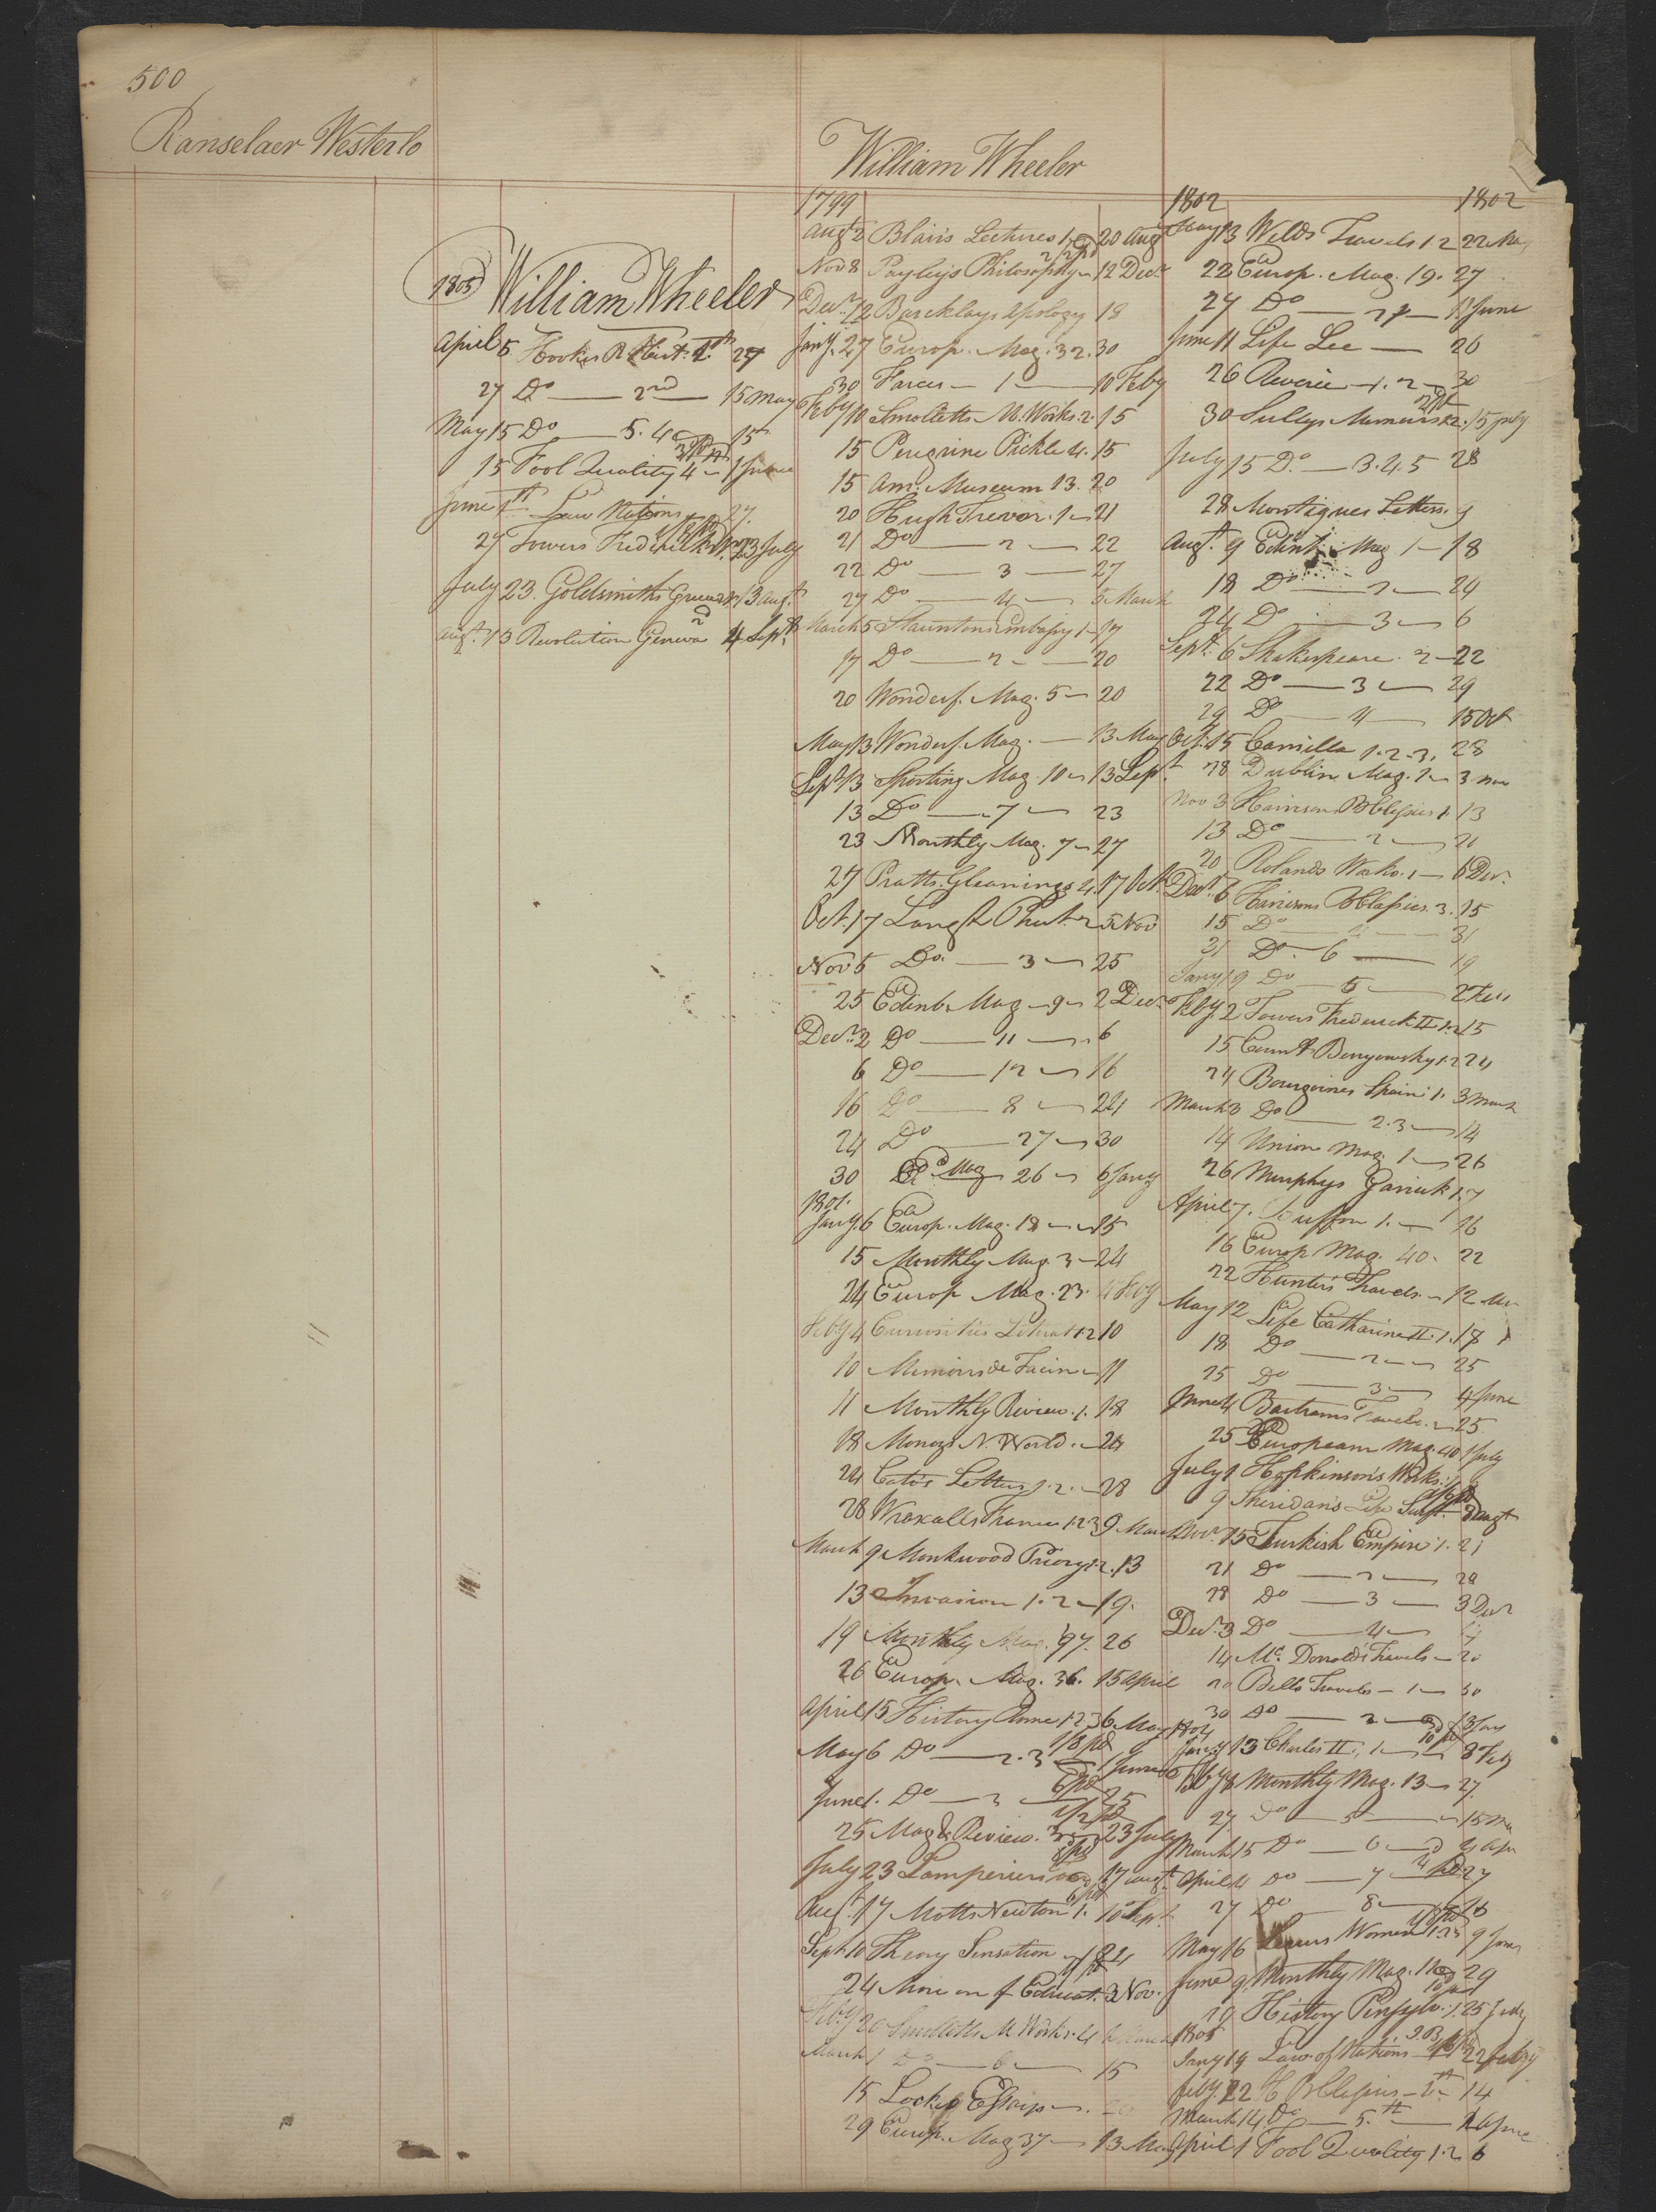 500
Ranselaer Westerlo
1805 William Wheeler
April 5 Hooke's R Hist. 1st 27
27 Do 2nd 15 May
May 15 Do 5. 4 15
15 Fool Quality 4 1 June
June 1st Law Nations 27
27 Towers Frederick 23 July
July 23 Goldsmiths Greece 13 Augt
Augt 13 Revolution Geneva 4 Sept
William Wheeler
1799
Augt 2 Blair's Lectures 1. 20 Aug
Nov 8 Payley's Philosophy 12 Decr
Decr 12 Barcklays Apology 18
Jany 27 Europ. Mag. 32. 30
30 Farces 1 10 Feby
Feby 10 Smolletts M. Works. 2. 15
15 Peregrine Pickle 4. 15
15 Am. Museum 13. 20
20 Hugh Trevor. 1 21
21 Do 2 22
22 Do 3 27
27 Do 4 5 March
March 5 Stauntons Embassy 1 17
17 Do 2 20
20 Wonderf. Mag. 5 20
May 13 Wonderf. Mag. 13 May
Sept 13 Sporting Mag. 10 13 Sept
13 Do 7 23
23 Monthly Mag. 7 27
27 Pratts Gleanings 4. 17 Oct
Oct. 17 Langh Plut. 2 5 Nov
Nov 5 Do. 3 25
25 Edinb. Mag 9 2 Decr
Decr 2 Do 11 6
6 Do 12 16
16 Do 8 24
24 Do 27 30
30 Mag 26 6 Jany
1801.
Jany 6 Europ. Mag. 18 15
15 Monthly Mag. 3 24
24 Europ Mag. 23. 4 Feby
Feby 4 Curiosities Literat 1.2 10
10 Memoirs de 11
11 Monthly Review. 1. 18
18 Monozs N. World. 24
24 Cato's Letters 1. 2. 28
28 Wraxalls France 1.2.3 9 March
March 9 Monkwood Priory 1.2. 13
13 Invasion 1. 2 19.
19 Monthly Mag. 97. 26
26 Europ. Mag. 36. 15 April
April 15 History Rome 1.2.3 6 May
May 6 Do 2. 3 1 June
June 1. Do 3 25
25 Mag & Review. 3 23 July
July 23 Lamperiers 17 Augt
Augt. 17 Motts Newton 1. 10 Sept
Sept. 10 Theory Sensation 24
24 More on f Educat. 3 Nov.
Feby 20 Smolletts M Works. 4 March
March 1 Do 6 15
15 Lockes Essays
29 Europ. Mag 37 13 May
1802 1802
May 13 Welds Travels 1 2 22 May
22 Europ. Mag. 19. 27
27 Do 11 June
June 11 Life Lee 26
26 Reverie 1. 2 30
30 Sullys Memoirs 1.2. 15 July
July 15 Do. 3. 4. 5 28
28 Montagues Letters. 9
Augt. 9 Edinb. Mag 1 18
18 Do 2 24
24 Do 3 6
Sept. 6 Shakespeare. 2 22
22 Do 3 29
29 Do 4 15 Oct
Oct. 15 Camilla 1. 2. 3. 28
28 Dublin Mag. 1 3 Nov
Nov 3 Harrison B Classics 1. 13
13 Do 2 20
20 Rolands Works. 1 6 Decr.
Decr. 6 Harrisons B Classics. 3. 15
15 Do 4 31
31 Do. 6 19
Jany 19 Do 5 2 Feb
Feby. 2 Towers Frederick II 1.2 15
15 Count Benyowsky 1.2 24
24 Bourgoines Spain 1. 3 March
March 3 Do 2. 3 14
14 Union Mag 1 26
26 Murphys Garrick 1. 7
April 7. Buffon 1. 16
16 Europ Mag. 40. 22
22 Hunter's Travels. 12 May
May 12 Life Catharine II. 1. 18
18 Do 2 25
25 Do 3 4 June
June 4 Bartrams Travels. 25.
25 European Mag. 40 1 July
July 1 Hopkinson's Works.
9 Sheridan's Life Swift. Augt
Novr. 15 Turkish Empire 1. 21
21 Do 2 28
28 Do 3 3 Decr
Decr. 3 Do 4
14 Mc. Donald's Travels 20
20 Bells Travels 1 30
30 Do 2 13 Jany
1804
Jany 13 Charles II. 1. 8 Feby
Feby 8 Monthly Mag. 13 27.
27 Do 5 15 Ma
March 15 Do 6 4 Apr
April 4 Do 7 27
27 Do 8 16
May 16 Women 1.2.3 9 June
June 9. Monthly Mag. 29
29 History Pensylv. 1. 25 July
1805
Jany 19 Law of Nations 22 Feby
Feby. 22 H B Classics 14
March 14 Do 5.th 1 Apr
April 1 Fool Quality 1. 2 6